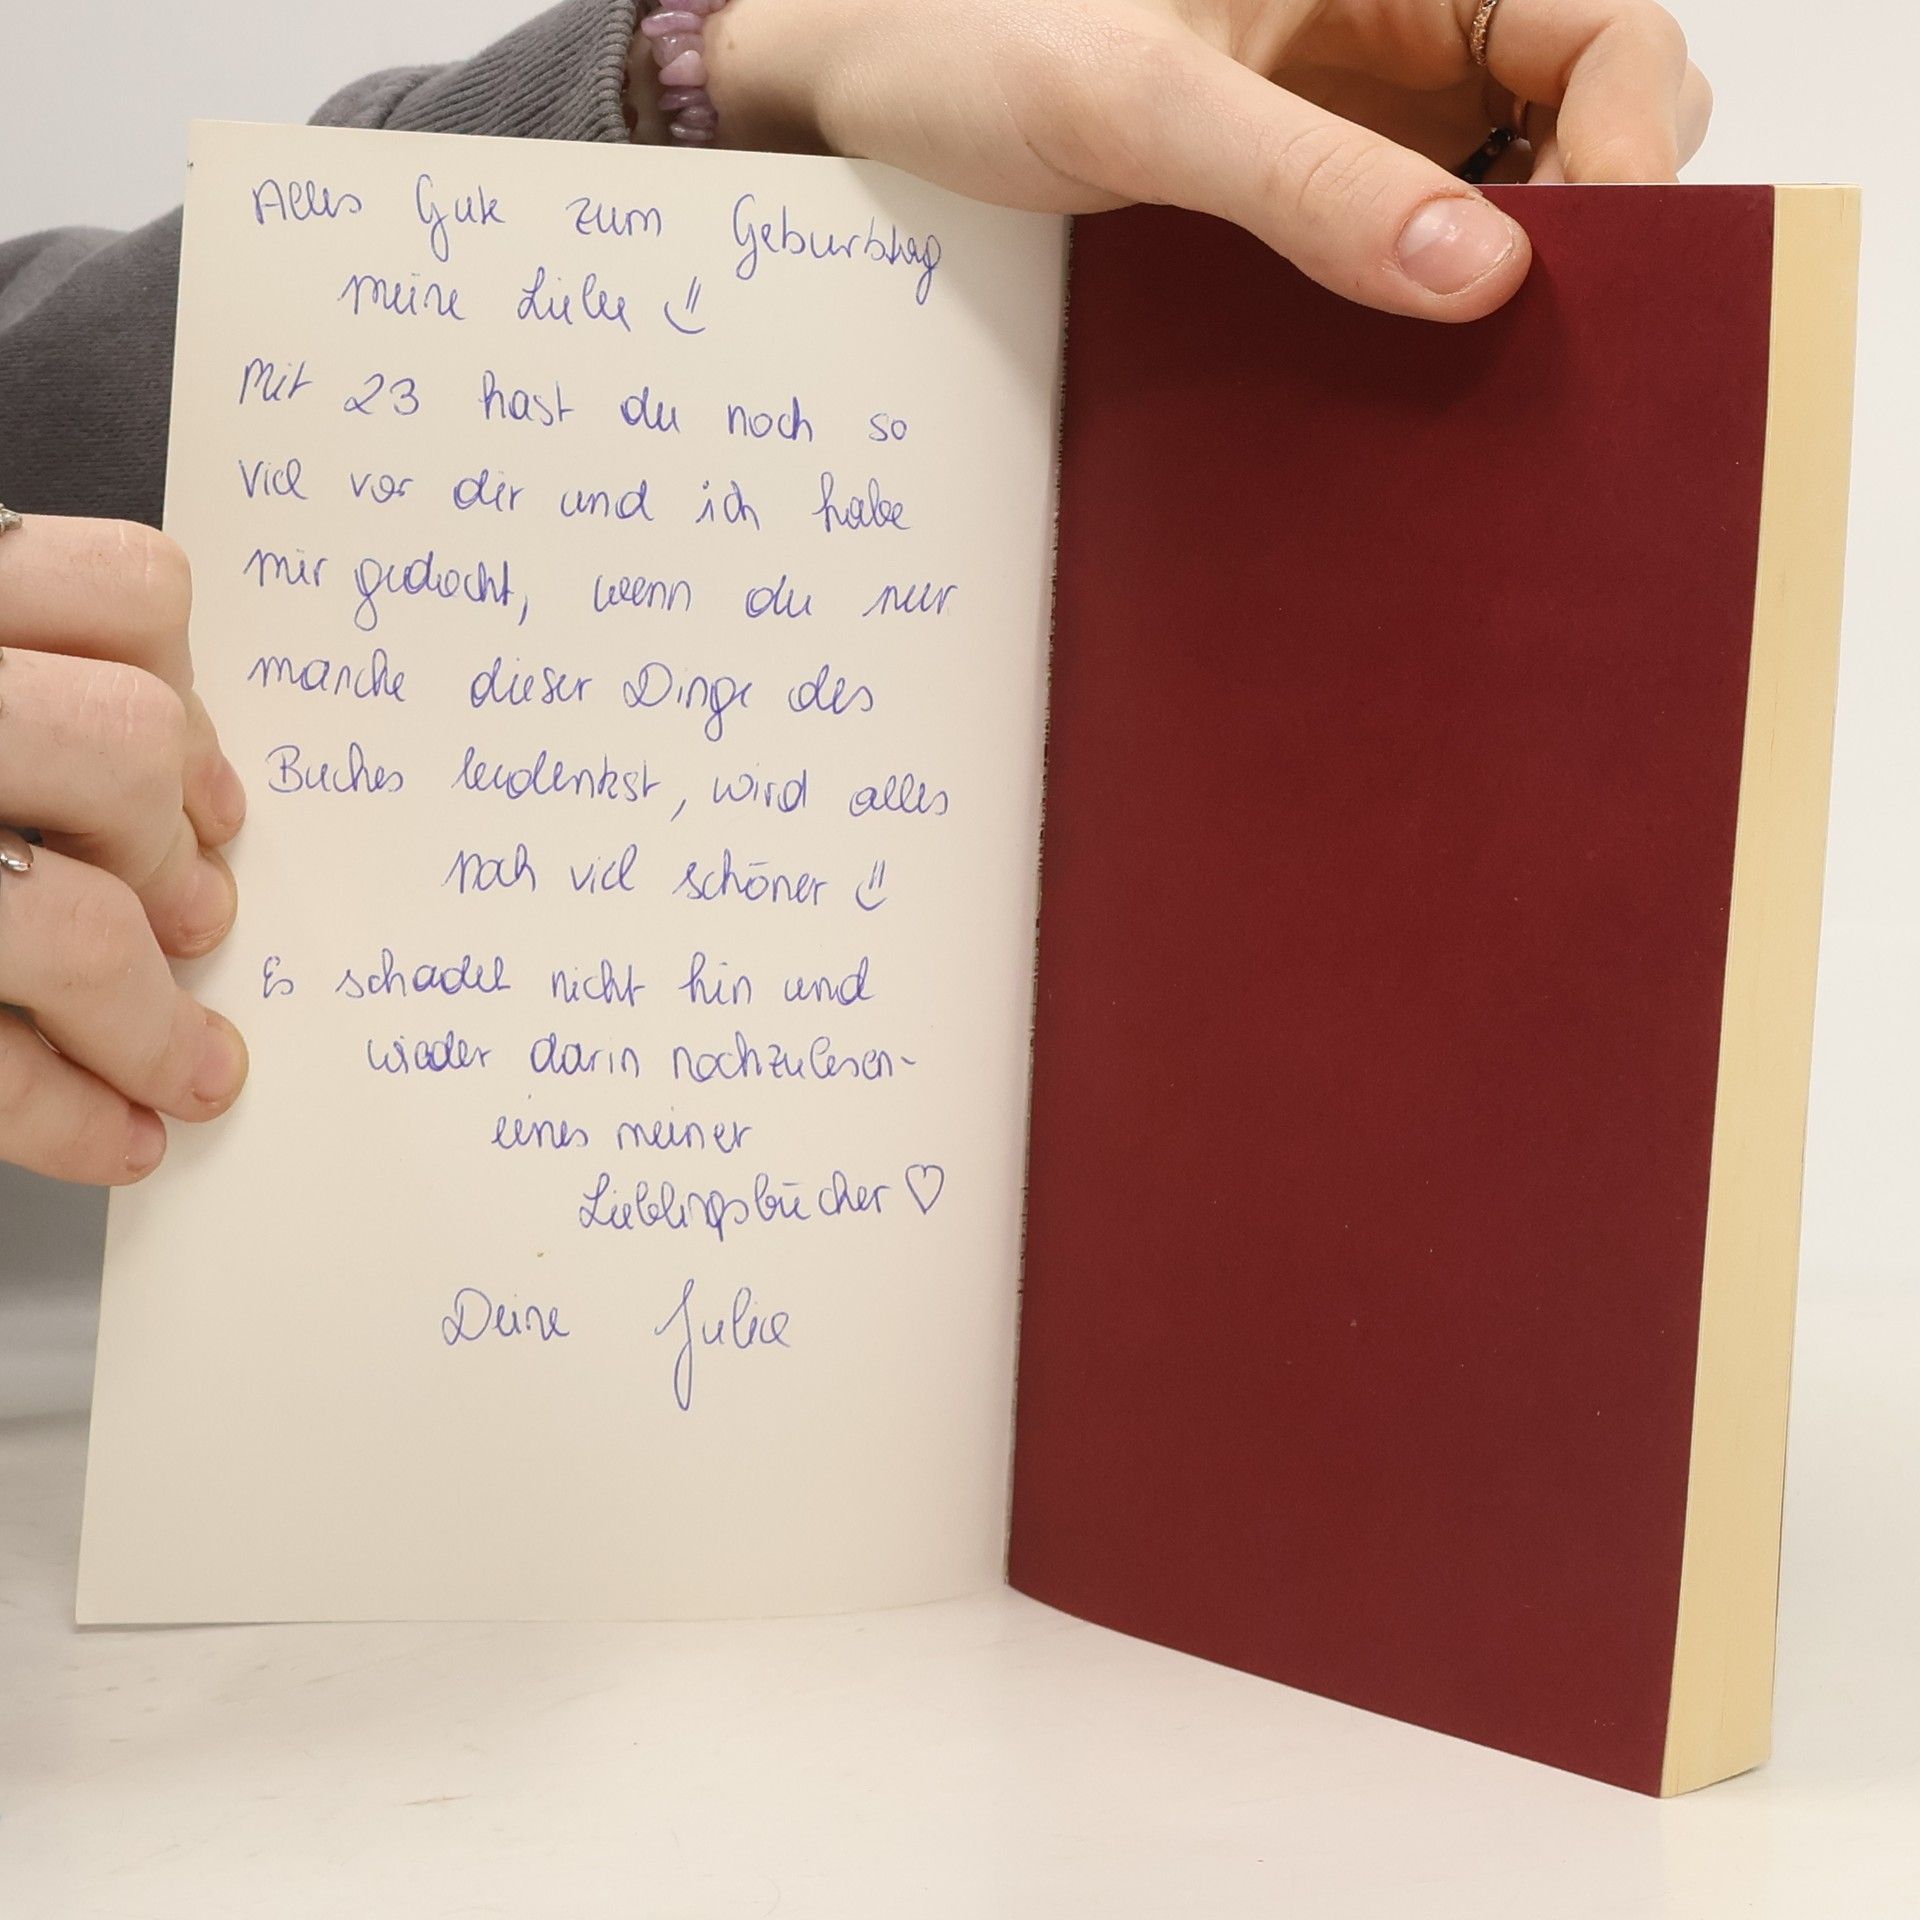 Alles Gute zum Geburtstag
meine Liebe
Mit 23 hast du noch so
viel vor dir und ich habe
mir gedacht, wenn du nur
manche dieser Dinge des
Buches bedenkst, wird alles
noch viel schöner
Es schadet nicht hin und
wieder darin nachzulesen-
eines meiner
Lieblingsbücher ♡
Deine Julia